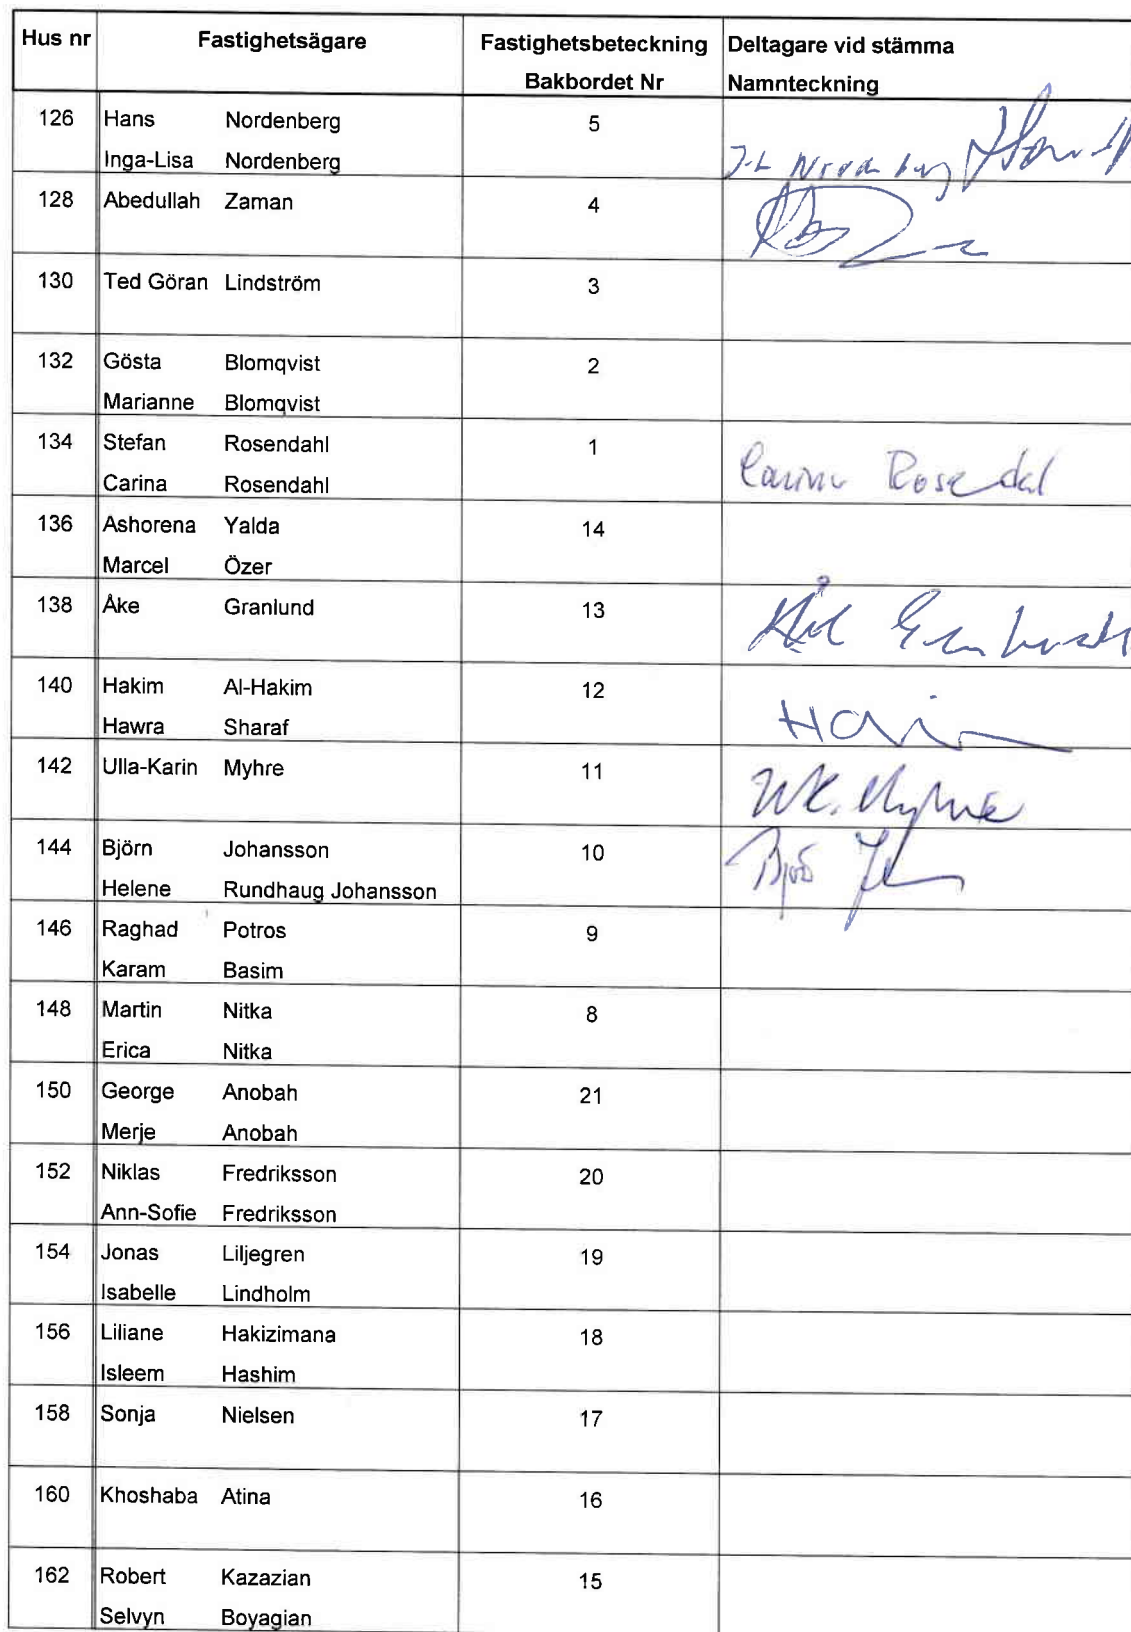 Hus nr Fastighetsägare Fastighetsbeteckning Deltagare vid stämma
Bakbordet Nr Namnteckning
126 Hans Nordenberg 5
Inga-Lisa Nordenberg I-L Nordenberg
128 Abedullah Zaman 4
130 Ted Göran Lindström 3
132 Gösta Blomqvist 2
Marianne Blomqvist
134 Stefan Rosendahl 1
Carina Rosendahl Carina Rosendal
136 Ashorena Yalda 14
Marcel Özer
138 Åke Granlund 13
140 Hakim Al-Hakim 12
Hawra Sharaf
142 Ulla-Karin Myhre 11 UK. Myhre
144 Björn Johansson 10
Helene Rundhaug Johansson
146 Raghad Potros 9
Karam Basim
148 Martin Nitka 8
Erica Nitka
150 George Anobah 21
Merje Anobah
152 Niklas Fredriksson 20
Ann-Sofie Fredriksson
154 Jonas Liljegren 19
Isabelle Lindholm
156 Liliane Hakizimana 18
Isleem Hashim
158 Sonja Nielsen 17
160 Khoshaba Atina 16
162 Robert Kazazian 15
Selvyn Boyagian